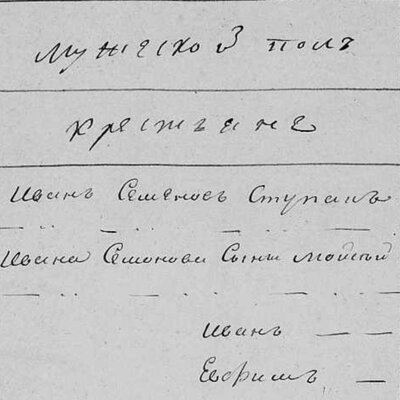 Мужеской полъ
крестьяне
Иванъ Семеновъ Ступакъ
Ивана Семонова Сынъ
Иванъ
Евфимъ